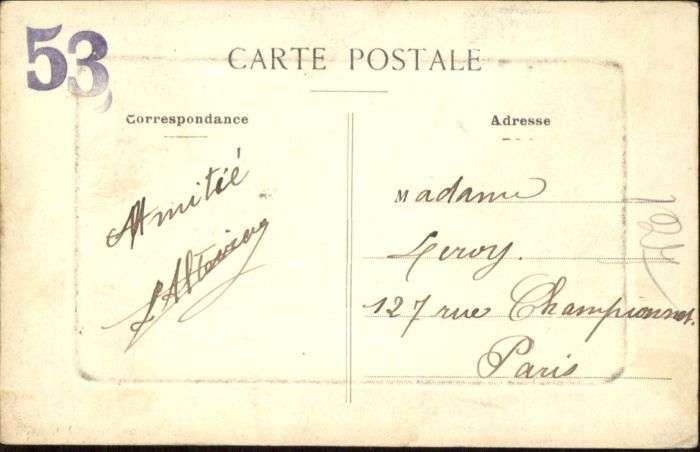 53
CARTE POSTALE
Correspondance
Amitié
Adresse
Madame
Leroy.
127 rue Championnet.
Paris